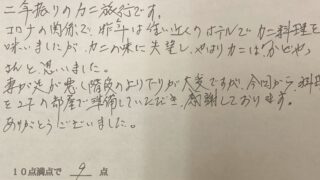 二年振りのカニ旅行です。
コロナの関係で、昨年は住い近くのホテルでカニ料理を
味いましたが、カニの味に失望し、やはりカニは“かどや”
さんと思いました。
妻が足が悪く階段のより下りが大変ですが、今回から料理
を2Fの部屋で準備していただき、感謝しております。
ありがとうございました。
10点満点で 9 点